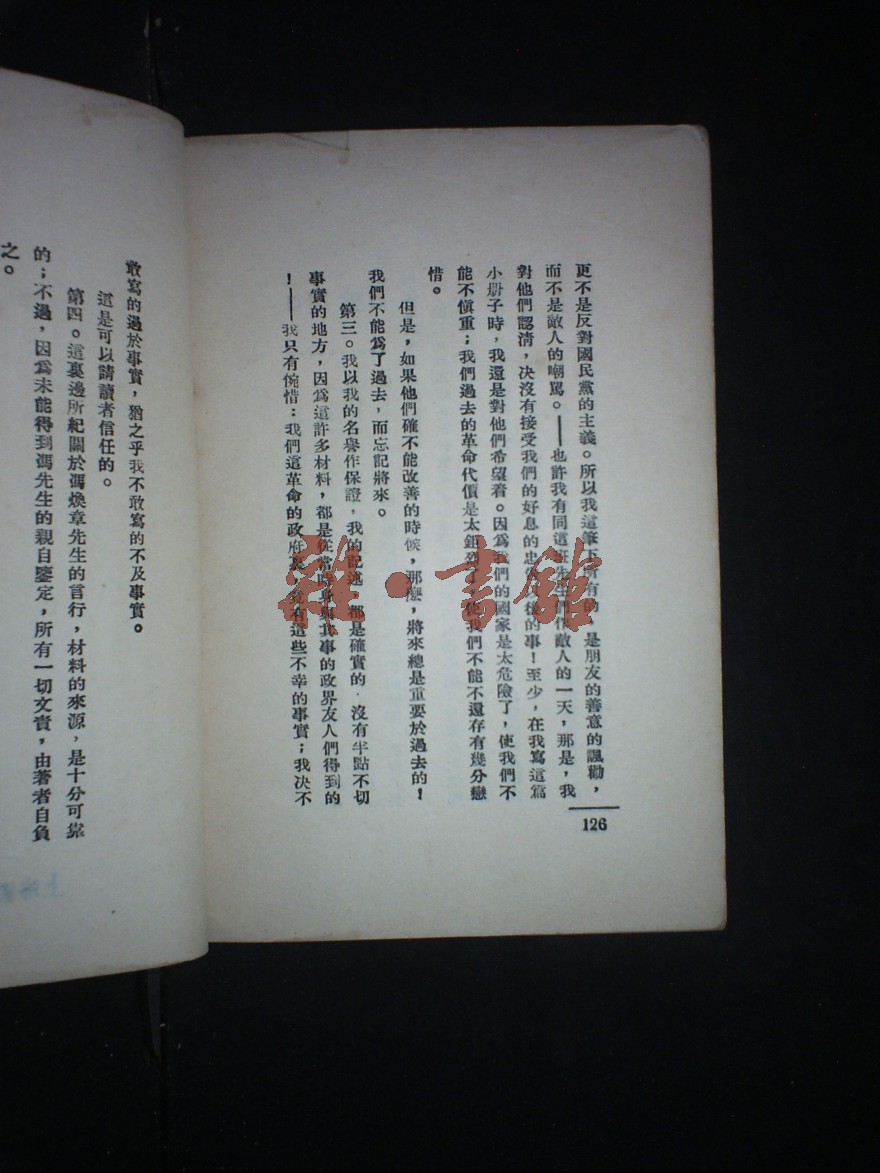 126
更不是反對國民黨的主義。所以我這筆下所有的，是朋友的善意的諷勸，
而不是敵人的嘲罵。——也許我有同這班先生們作敵人的一天，那是，我
對他們認清，決沒有接受我們的好意的忠告的事！至少，在我寫這篇
小冊子時，我還是對他們希望着。因爲我們的國家是太危險了，使我們不
能不愼重；我們過去的革命代價是太鉅烈了，使我們不能不還存有幾分戀
惜。
但是，如果他們確不能改善的時候，那麽，將來總是重要於過去的！
我們不能爲了過去，而忘記將來。
第三。我以我的名譽作保證，我的記述，都是確實的，沒有半點不切
事實的地方，因爲這許多材料，都是從當時身與其事的政界友人們得到的
！——我只有惋惜：我們這革命的政府，竟有這些不幸的事實；我決不
敢寫的過於事實，猶之乎我不敢寫的不及事實。
這是可以請讀者信任的。
第四。這裏邊所紀關於馮煥章先生的言行，材料的來源，是十分可靠
的；不過，因爲未能得到馮先生的親自鑒定，所有一切文責，由著者自負
之。
雜·書館